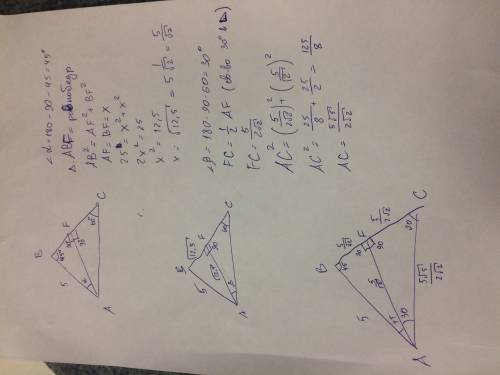 ∠α = 180 - 90 - 45 = 45°
Δ ABF = равнобедр
AB² = AF² + BF²
AF = BF = x
25 = x² + x²
2x² = 25
x² = 12,5
x = √12,5 = 5 1/√2 = 5/√2
∠β = 180-90-60 = 30°
FC = 1/2 AF (св-во 30° в Δ)
FC = 5/2√2
AC² = (5/2√2)² + (5/√2)²
AC² = 25/8 + 25/2 = 125/8
AC = 5√5/2√2
B
F
C
A
5
45°
90
90
60°
B
√12,5
F
C
A
5
√12,5
90
60
β
B
5/√2
F
5/2√2
C
A
5
5/√2
90
90
45
30
5√5/2√2